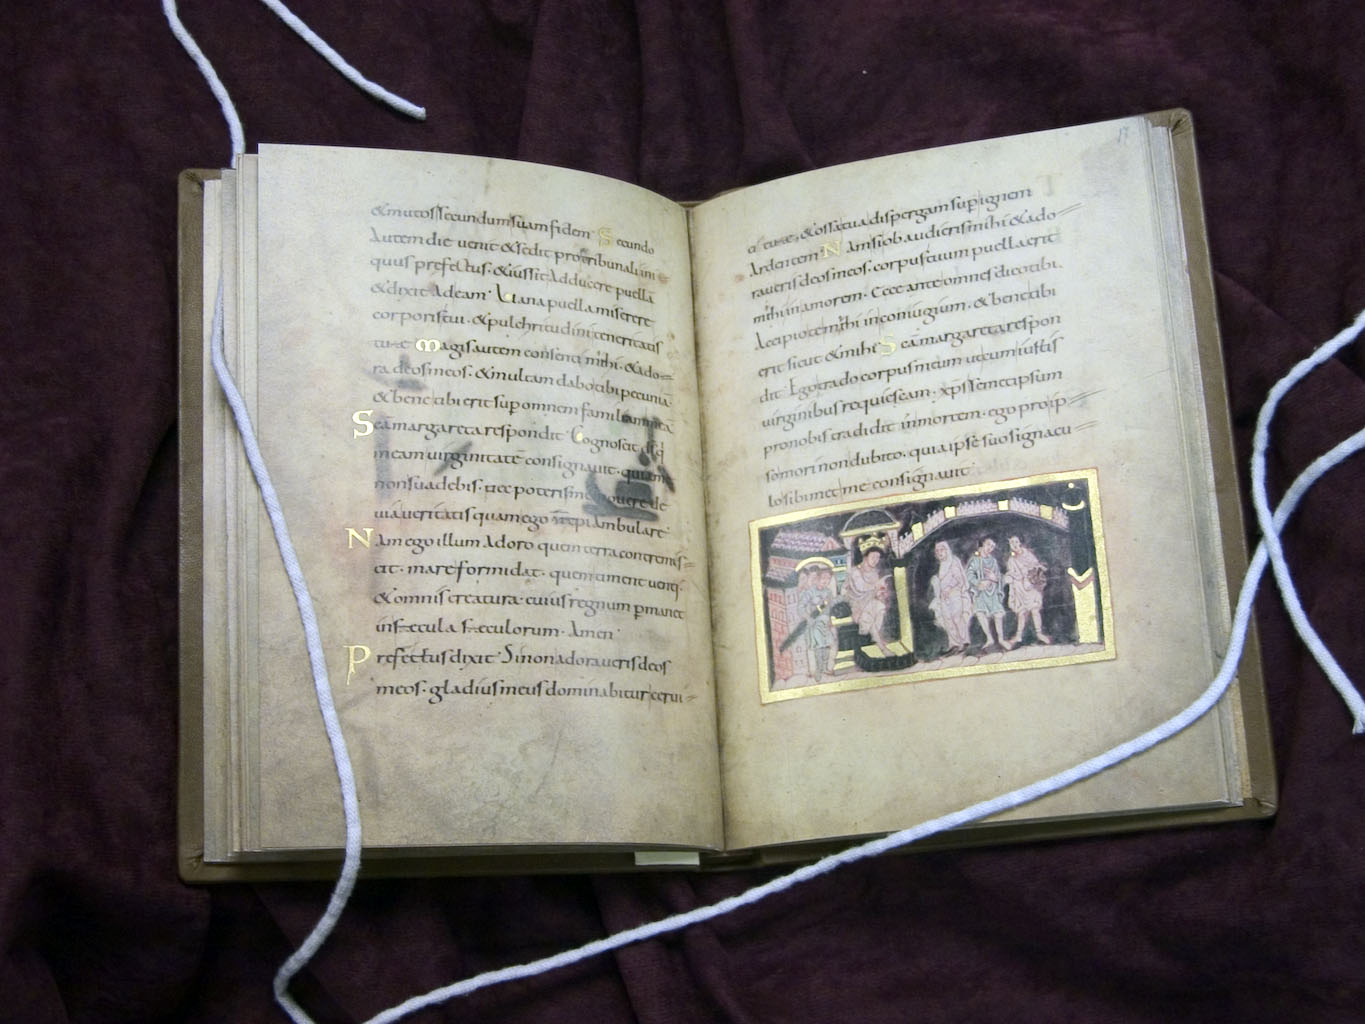 & mutos secundum suam fidem Secundo
Autem die venit & sedit pro tribunali ini
quus prefectus · & iussit Adducere puella
& dixit Adeam · Uana puella miserere
corporis tui · & pulchritudini teneritatis
tuae magis autem consenti mihi · & ado
ra deos meos · & multam dabo tibi pecunia
& bene tibi erit sup omnem familiam mea
Sca margareta respondit Cognoscit
meam virginitatē consignavit · quiam
non suadebis · nec poteris me movere de
via veritatis quam ego coepi Ambulare
Nam ego illum Adoro quem terra contremis
cit · mare formidat · quem timent venti ·
& omnis creatura · cuius regnum pmanet
in saecula saeculorum · Amen
Prefectus dixit Si non adoraueris deos
meos · gladius meus dominabitur cervi
17
ci tuae, & ossa tua dispergam sup ignem
Ardentem Nam si ob audieris mihi & ado
raveris deos meos · corpus tuum puella erit
mihi in amorem · Ecce ante omnes dico tibi ·
Accipio te mihi in coniugium · & bene tibi
erit sicut & mihi Sca margareta respon
dit · Ego trado corpus meum ut cum iustis
virginibus requiescam · xps semetipsum
pro nobis tradidit in mortem · ego pro ip
so mori non dubito · quia ipse suo signacu
lo sibimet me consignavit